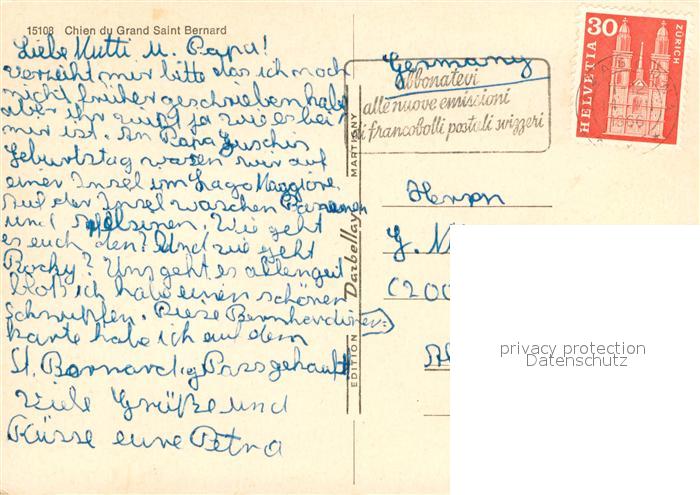 15108 Chien du Grand Saint Bernard
Liebe Mutti u. Papa!
verzeiht mir bitte das ich noch
nicht früher geschrieben habe
aber ihr wißt ja wie es bei
mir ist. An Papa Geburtstag waren wir auf
einer Insel im Lago Maggiore
auf der Insel waschen Bananen
und Apfelsinen. Wie geht
es euch den? Und wie geht
Rocky? Uns geht es allen gut
bloß ich habe einen schönen
Schnupfen. Diese Bernhardiner=
karte habe ich auf dem
St. Bernard Pass gekauft
Viele Grüße und
Küsse eure Petra
EDITION Darbellay MARTIGNY
Germany
abbonatevi
alle nuove emissioni
di francobolli postali svizzeri
HELVETIA 30 ZÜRICH
Herrn
G.
(200
privacy protection
Datenschutz